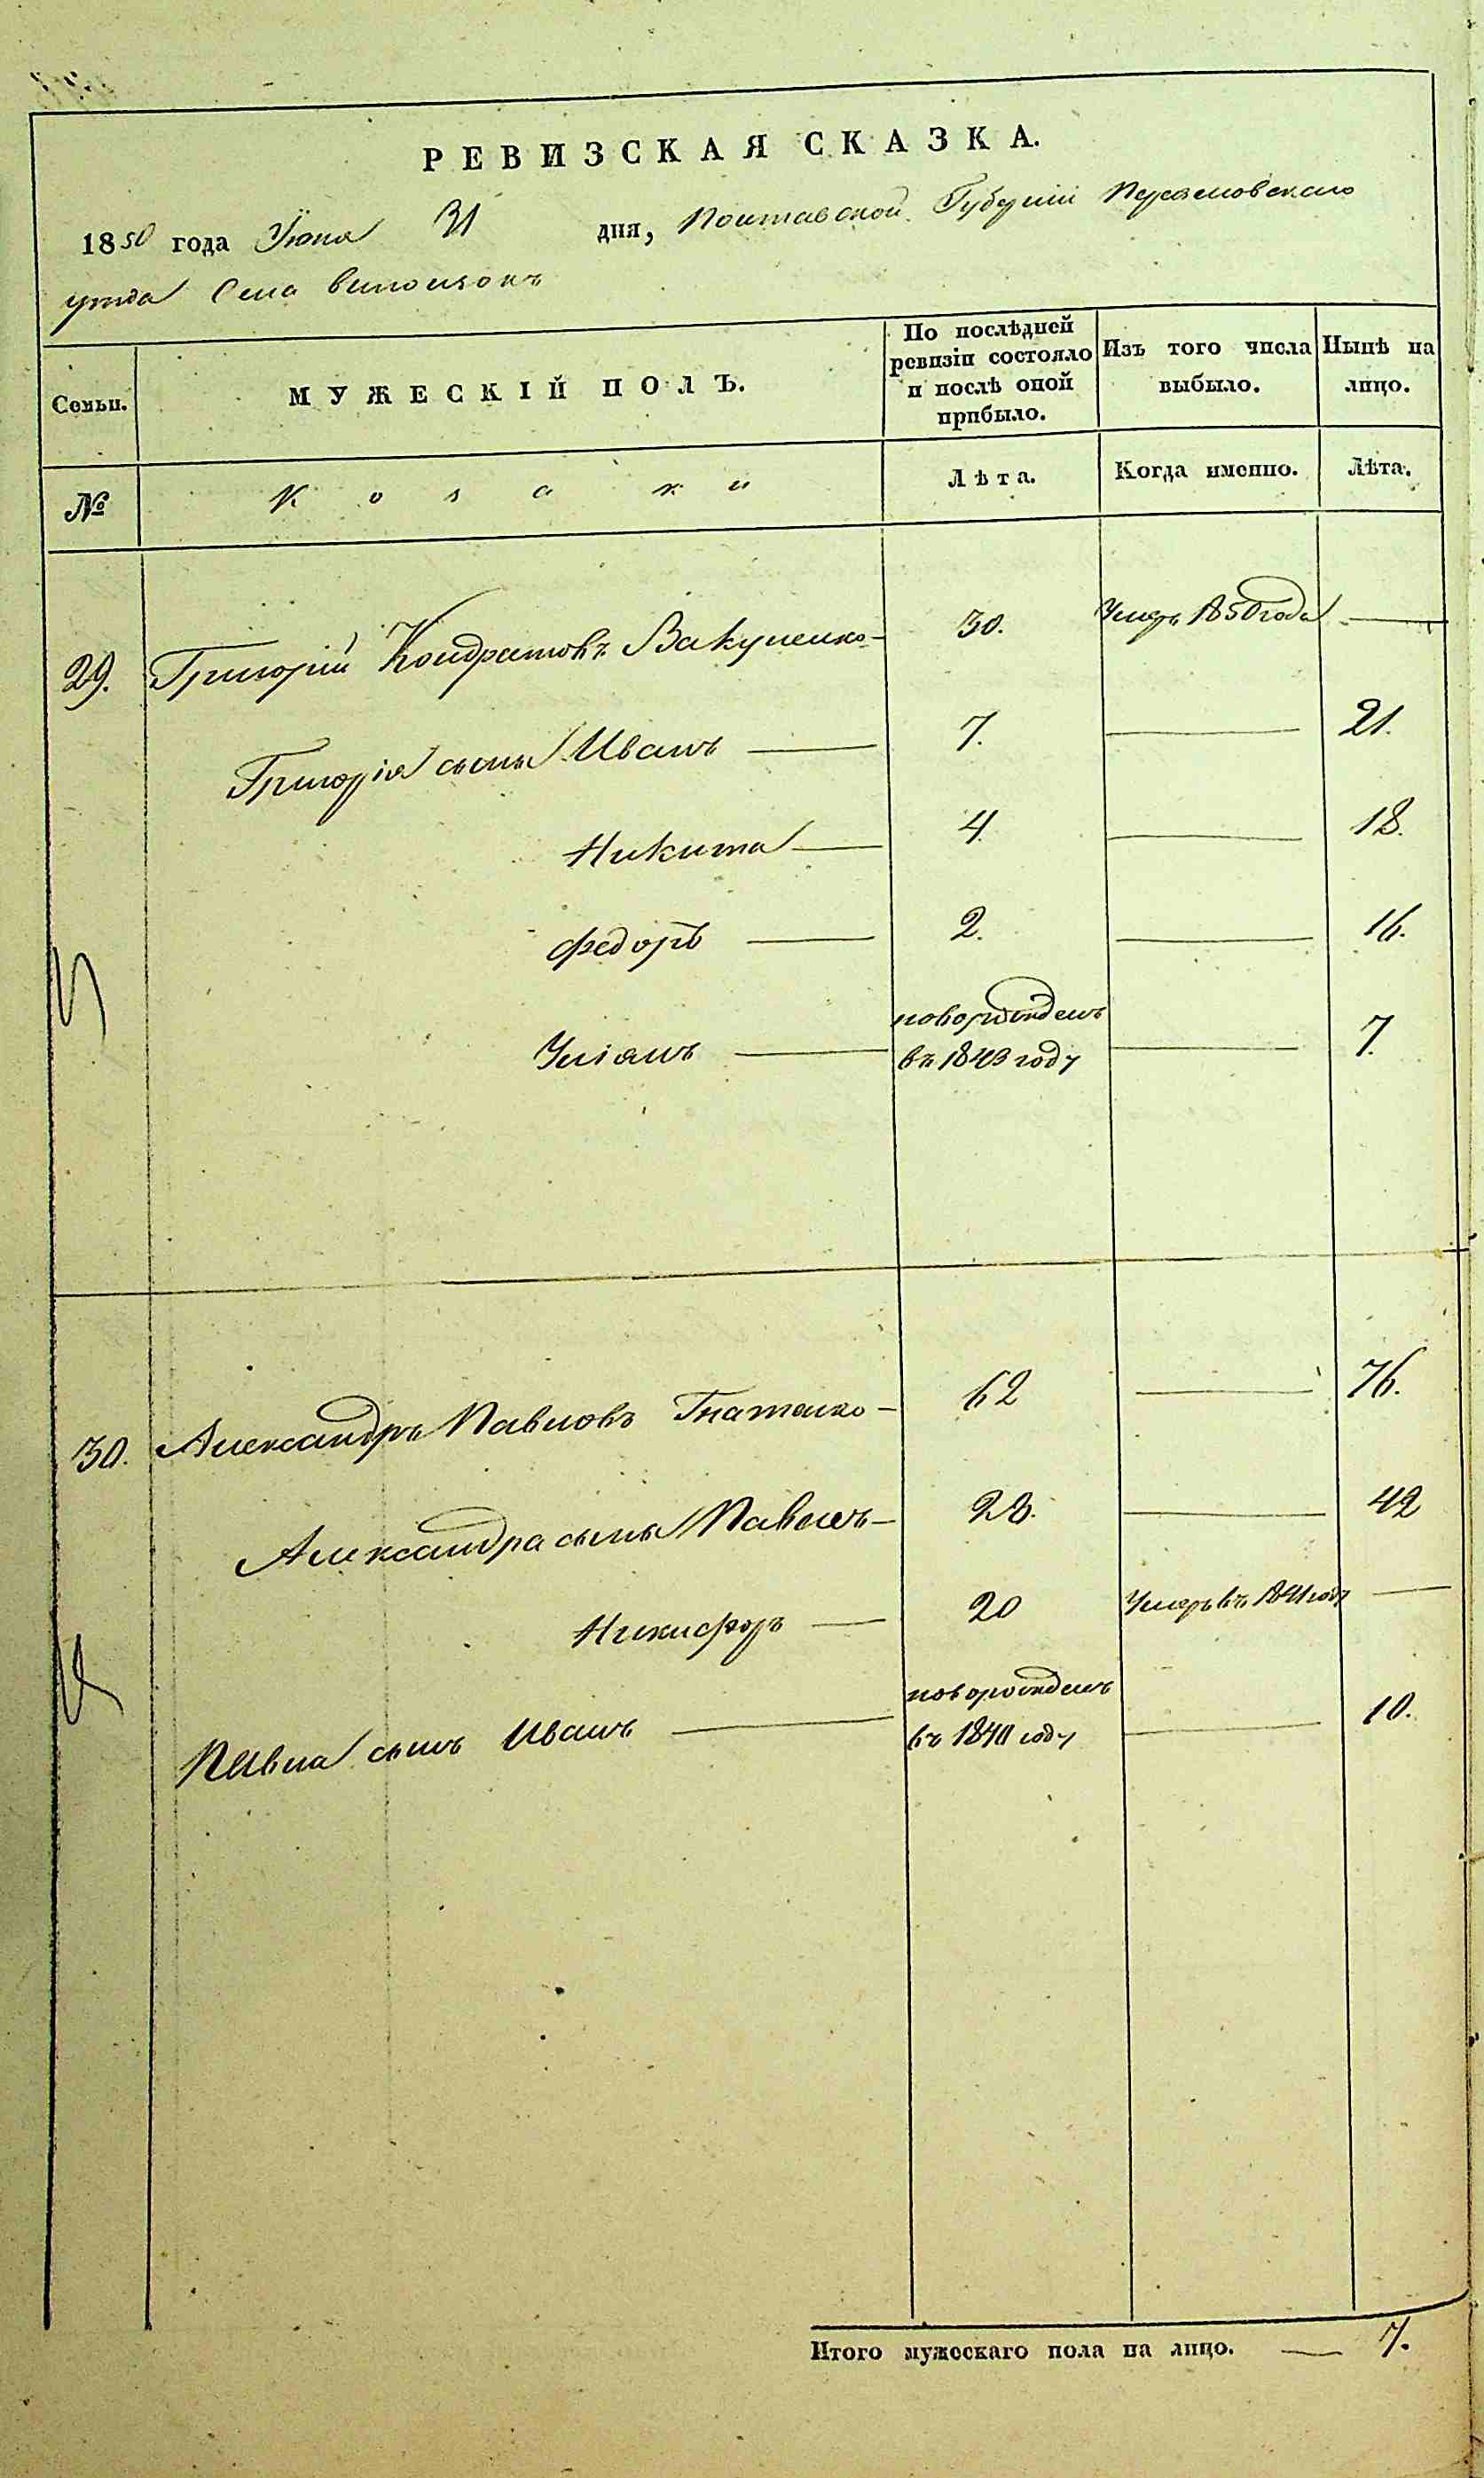 РЕВИЗСКАЯ СКАЗКА.
1850 года Июня 31 дня, Полтавской Губерніи Переяславскаго
уезда Села
Семьи. МУЖЕСКІЙ ПОЛЪ. По послѣдней ревизіи состояло и послѣ оной прибыло. Изъ того числа выбыло. Нынѣ на лицо.
№ Козаки Лѣта. Когда именно. Лѣта.
29. Григорій Кондратовъ Вакуленко 30. Умеръ 1850 года
Григорія сыны Иванъ 7. 21.
Никита 4. 18.
Федоръ 2. 16.
Уліянъ новорожденъ в 1843 году 7.
30. Александръ Павловъ Гнатенко 62 76.
Александра сыны Павелъ 28. 42
Никифоръ 20 Умеръ въ 1841 году
Павла сынъ Иванъ новорожденъ въ 1840 году 10.
Итого мужескаго пола на лицо. 7.